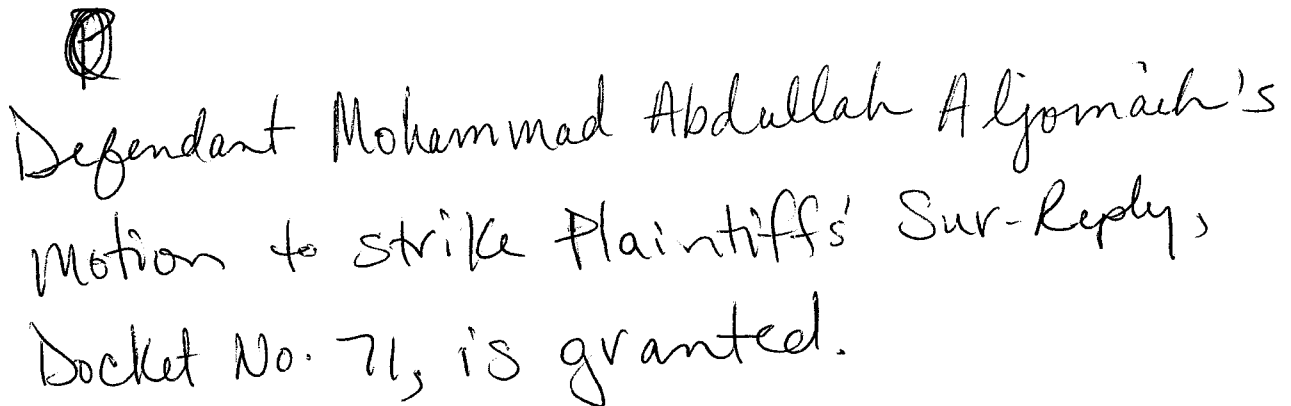 Defendant Mohammad Abdullah Aljomaih's
motion to strike Plaintiffs' Sur-Reply,
Docket No. 71, is granted.